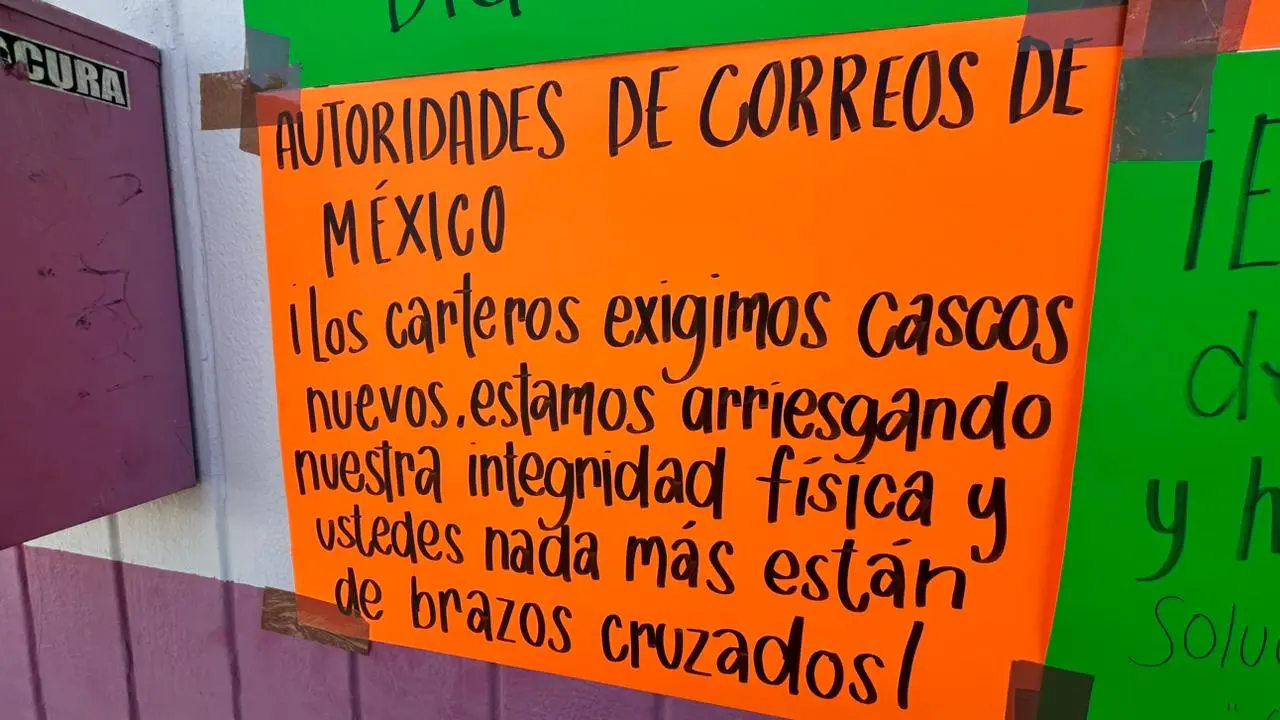 AUTORIDADES DE CORREOS DE
MÉXICO
¡Los carteros exigimos cascos
nuevos. estamos arriesgando
nuestra integridad física y
ustedes nada más están
de brazos cruzados!
y